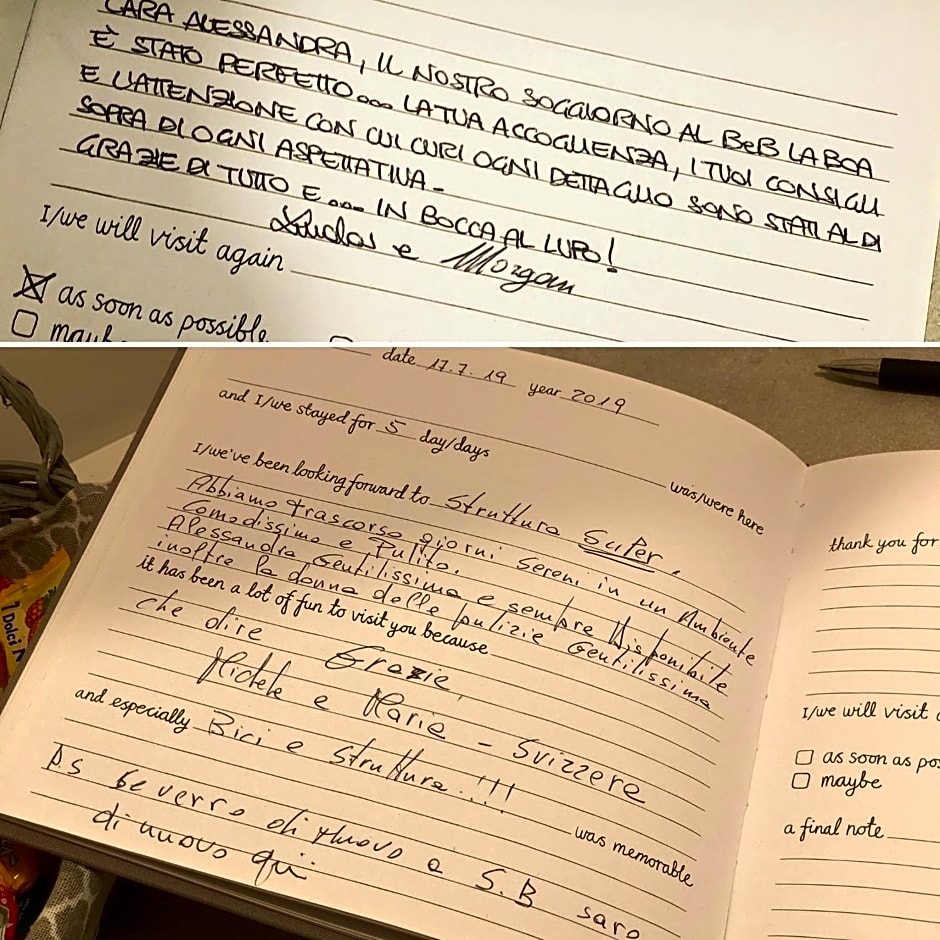 CARA ALESSANDRA, IL NOSTRO SOGGIORNO AL BeB LA BOA
È STATO PERFETTO... LA TUA ACCOGLIENZA, I TUOI CONSIGLI
E L'ATTENZIONE CON CUI CURI OGNI DETTAGLIO SONO STATI AL DI
SOPRA DI OGNI ASPETTATIVA-
GRAZIE DI TUTTO E... IN BOCCA AL LUPO!
e Morgan
I/we will visit again
as soon as possible
date 17.7.19 year 2019
and I/we stayed for 5 day/days
was/were here
I/we've been looking forward to Struttura Super.
Abbiamo trascorso giorni sereni in un Ambiente
Comodissimo e Pulito.
Alessandra Gentilissima e sempre Disponibile
inoltre la donna delle pulizie Gentilissima
it has been a lot of fun to visit you because
che dire Grazie,
Michele e Marie - Svizzere
and especially Bici e Struttura!!!
was memorable
PS se verro di nuovo a S.B saro
di nuovo qui
thank you for
I/we will visit
as soon as pos
maybe
a final note